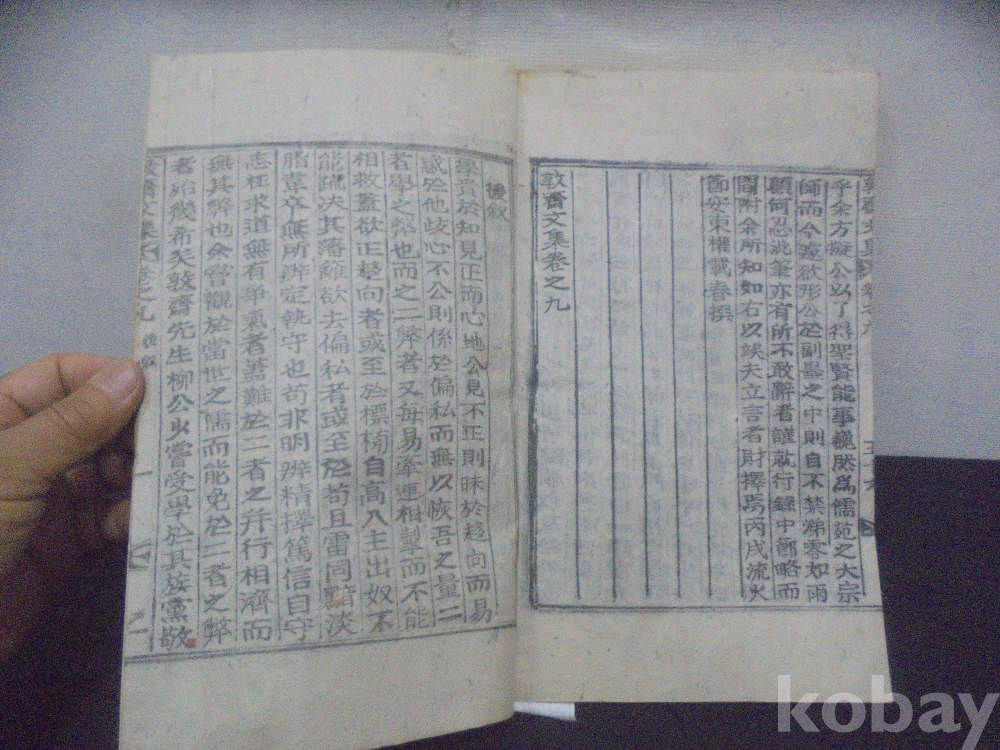 乎余方擬公以了得聖賢能事巍然爲儒苑之大宗
師而今遽欲形公於副墨之中則自不禁涕零如雨
顧何忍泚筆亦有所不敢辭者謹就行錄中節略而
間附余所知如右以竢夫立言者財擇焉丙戌流火
節安東權載春撰
敦齋文集卷之九
後敘
學貴於知見正而心地公見不正則昧於趍向而易
惑於他歧心不公則係於偏私而無以恢吾之量二
者學之弊也而之二弊者又每易牽連相掣而不能
相救蓋欲正趍向者或至於標榜自高入主出奴不
能疏決其藩籬欲去偏私者或至於苟且雷同黯淡
脂韋卒無所辨定執守也苟非明辨精擇篤信自守
志在求道無有爭氣者甚難於二者之幷行相濟而
無其弊也余嘗觀於當世之儒而能免於二者之弊
者殆幾希矣敦齋先生柳公少嘗受學於其族黨敬
敦齋文集 卷之九 後敘
kobay